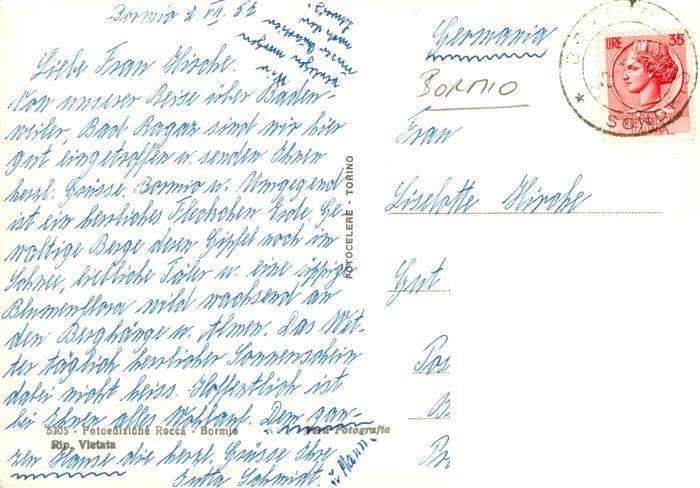 Bormio 2. VII. 52
Liebe Frau Hirche.
Von unserer Reise über Baden-
weiler, Bad Ragaz sind wir hier
gut eingetroffen u. senden Ihnen
herzl. Grüsse. Bormio u. Umgegend
ist ein herrliches Fleckchen Erde Ge-
waltige Berge deren Gipfel noch im
Schnee, liebliche Täler u. eine üppige
Blumenflora wild wachsend an
den Berghänge u. Almen. Das Wet-
ter täglich herrlicher Sonnenschein
dabei nicht heiss. Hoffentlich ist
bei Ihnen alles wohlauf. Dem gan-
zen Hause die herzl. Grüsse Ihre
Jutta Schmidt.
u Mann
5205 - Fotoedizione Rocca - Bormio
Rip. Vietata
Vera Fotografia
FOTOCELERE - TORINO
Germania
BORMIO
Frau
Liselotte Hirche
Gut
LIRE 35